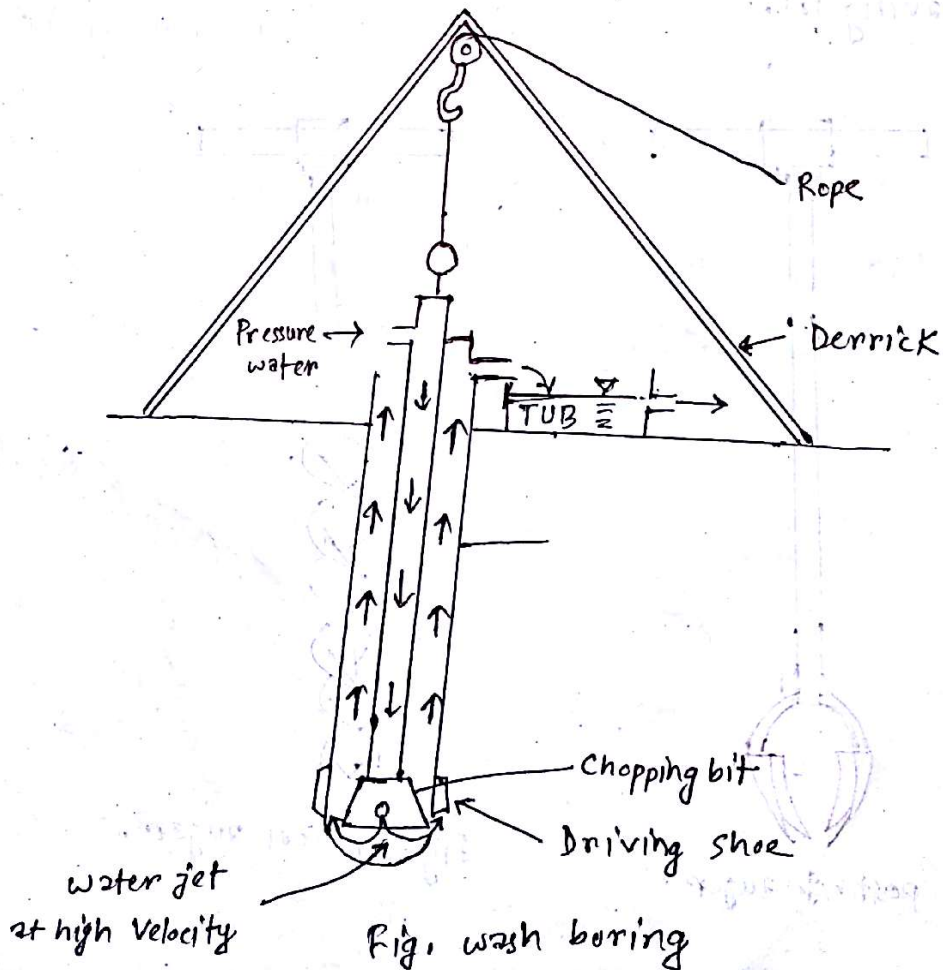 Rope
Derrick
Pressure
water
TUB
Chopping bit
Driving shoe
water jet
at high Velocity
Fig. wash boring